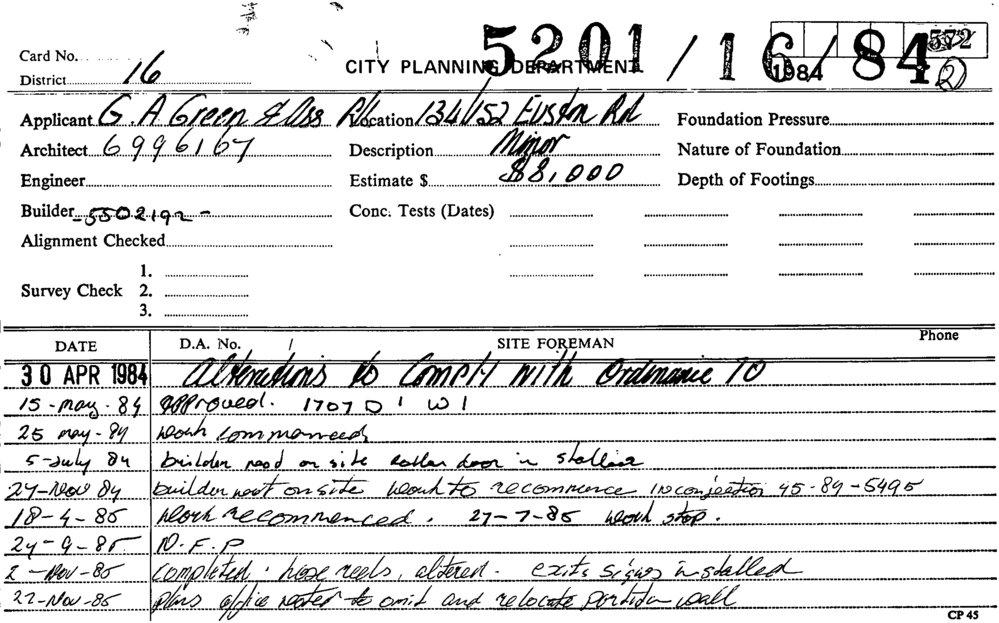 5201/16/84
572
Card No.
1984
2
District 16
CITY PLANNING DEPARTMENT
Applicant G. A Green & Ass P/L Location 134/152 Euston Rd Foundation Pressure
Architect 6996167 Description Minor Nature of Foundation
Engineer Estimate $ $8,000 Depth of Footings
Builder 5502192 - Conc. Tests (Dates)
Alignment Checked
1.
Survey Check 2.
3.
DATE D.A. No. / SITE FOREMAN Phone
30 APR 1984 Alterations to Comply with Ordinance 70
15-may-84 approved. 1707 D 1 W 1
25 may-84 work commenced
5-July 84 builder on site door in
27-Nov 84 builder on site work to recommence 45-84-5495
18-4-85 work recommenced. 27-7-85 work stop.
24-9-85 N.F.P
2-Nov-85 completed. hose reels, altered. exits signs installed
22-Nov-85 plans office to omit and relocate wall
CP 45